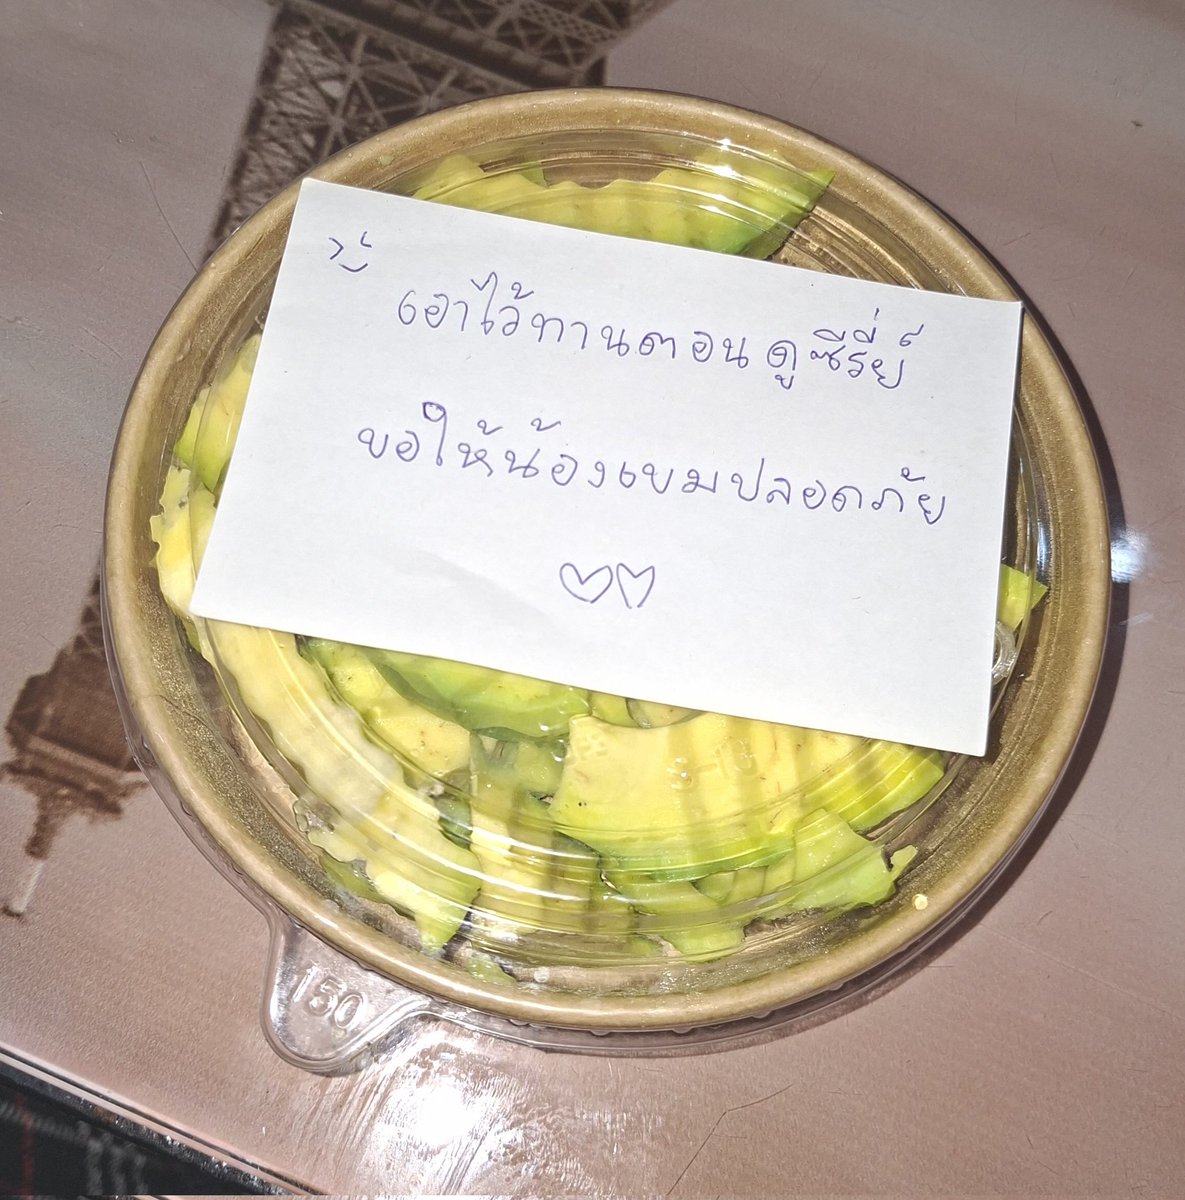 เอาไว้ทานตอนดูซีรี่ย์
ขอให้น้องเขมปลอดภัย
150